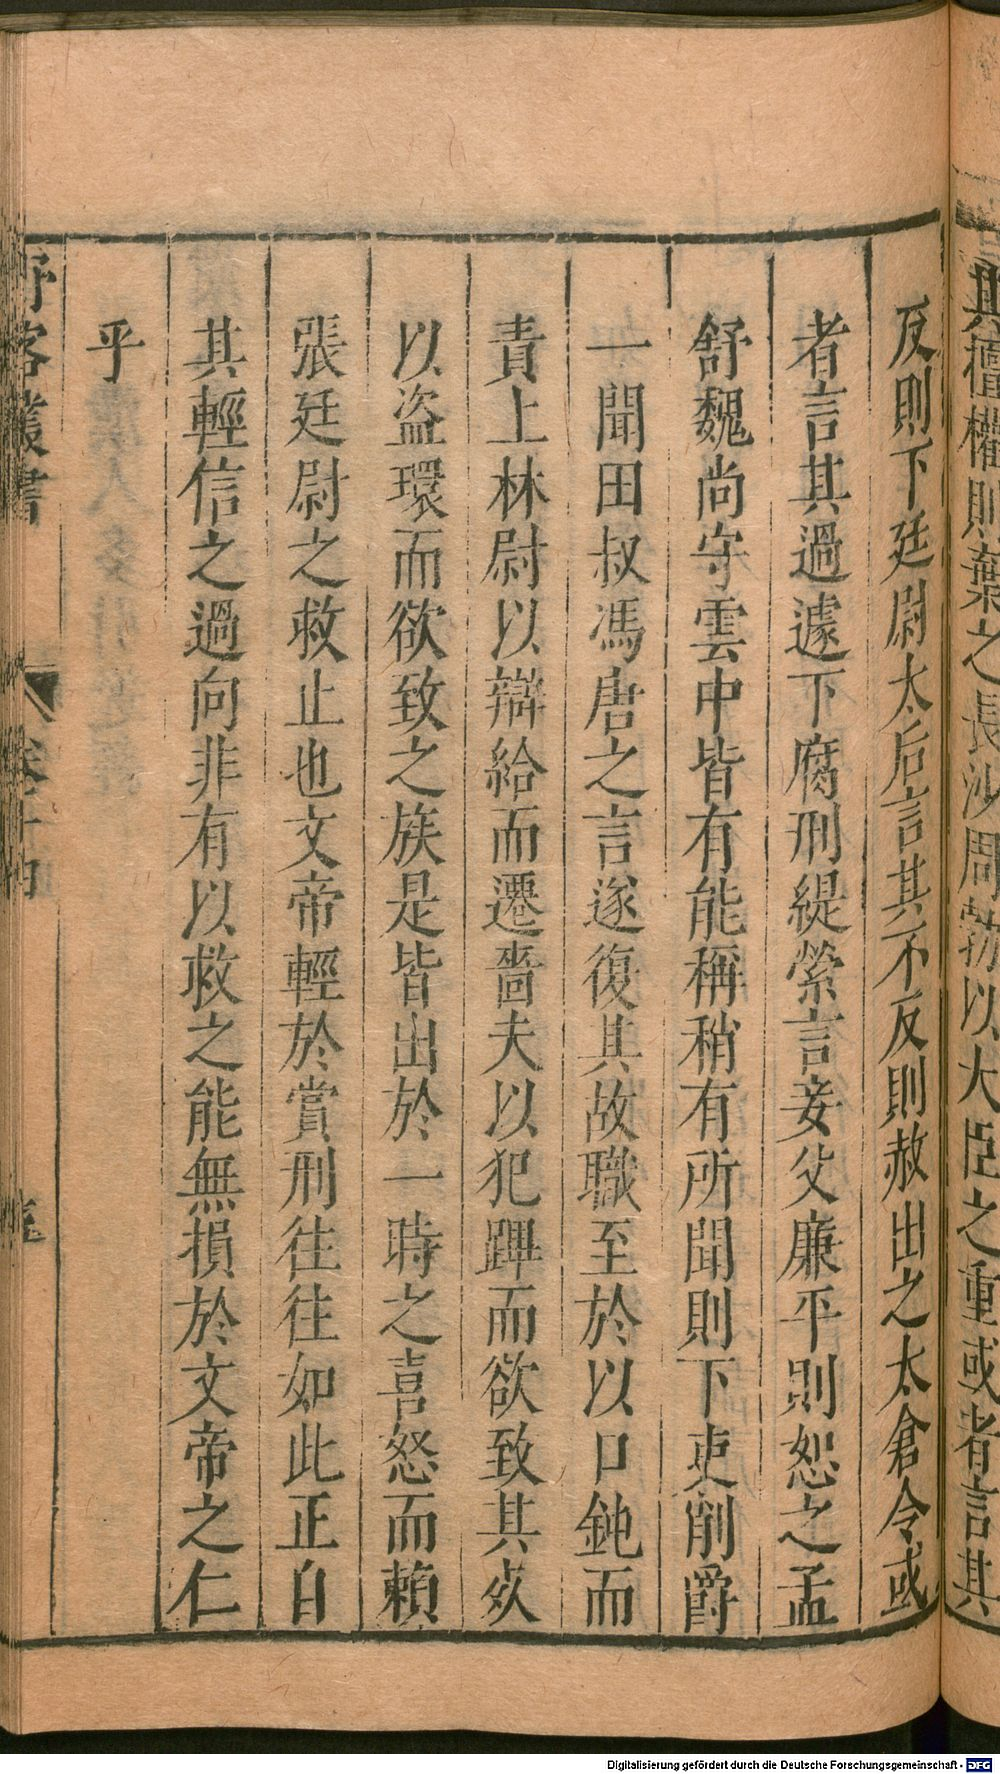 與擅權則棄之長沙周勃以大臣之重或者言其
反則下廷尉太后言其不反則赦出之太倉令或
者言其過遽下腐刑緹縈言妾父廉平則恕之孟
舒魏尚守雲中皆有能稱稍有所聞則下吏削爵
一聞田叔馮唐之言遂復其故職至於以口鈍而
責上林尉以辯給而遷嗇夫以犯蹕而欲致其死
以盗環而欲致之族是皆出於一時之喜怒而賴
張廷尉之救止也文帝輕於賞刑往往如此正自
其輕信之過向非有以救之能無損於文帝之仁
乎
野客叢書 卷十四
Digitalisierung gefördert durch die Deutsche Forschungsgemeinschaft - DFG